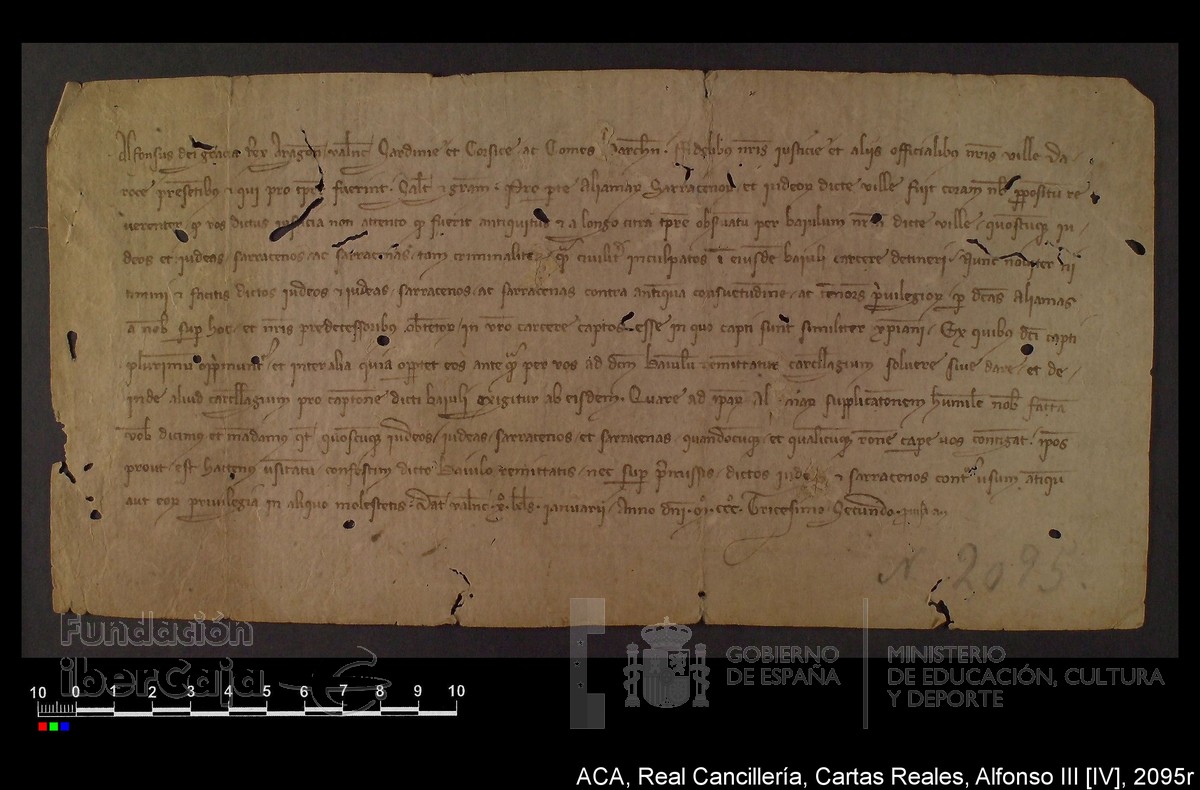 Alfonsus dei gracia Rex Aragon valnc Sardinie et Corsice ac Comes Barchn. fidelibus nris justicie et aliis officialibus nris ville Da
roce presentibus et qui pro tpre fuerint. Salt et gram. Pro pte Aliamar Sarracenor et iudeor dicte ville fuit coram nob ppositu re
verenter qd vos dictus justicia non attento qd fuerit antiquitus et a longo citra tpre obsvatu per baiulum nrm dicte ville quoscuq iu
deos et iudeas sarracenos ac sarracenas tam criminalit qm civilit inculpatos i eiusde baiuli carcere detineri. Nunc noviter ni
timini et facitis dictos iudeos et iudeas sarracenos ac sarracenas contra antiqua consuetudine ac tenore privilegior p dcas Aliamas
a nob sup hoc et nris predecessoribus obtentor in vro carcere captos esse in quo capti sunt similiter xpiani. Ex quibus dci capti
plurimu opprimunt et inter alia quia oportet eos ante qm per vos ad dcm Baiulu emittatur carcellagium solvere sive dare et de
inde aliud carcellagium pro captione dicti baiuli exigitur ab eisdem. Quare ad ipar Aliamar supplicationem humile nob facta
vob dicimus et mandamus qt quoscuq iudeos iudeas sarracenos et sarracenas quandocuq et qualitcuq rone cape vos contingat ipos
prout est hactenus usitatu confestim dicto Baiulo remittatis nec sup pmissis dictos iudeos et sarracenos cont usum antiqu
aut eor privilegia in aliquo molestetis. Dat valnc kls ianuarii Anno dni Mo CCCo Tricesimo Secundo
N 2095.
Fundación
iberCaja
GOBIERNO
DE ESPAÑA
MINISTERIO
DE EDUCACIÓN, CULTURA
Y DEPORTE
10 0 1 2 3 4 5 6 7 8 9 10
ACA, Real Cancillería, Cartas Reales, Alfonso III [IV], 2095r